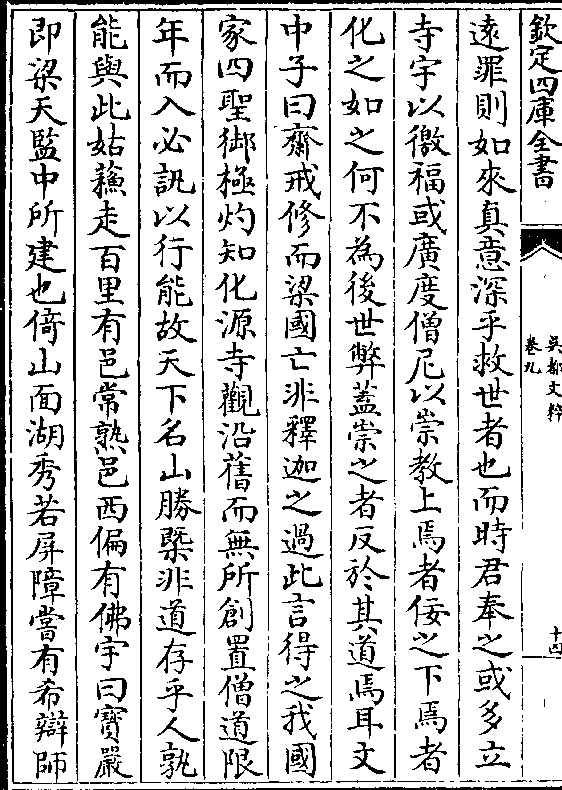 欽定四庫全書
吳都文粹
卷九
十四
遠罪則如來真意深乎救世者也而時君奉之或多立
寺宇以徼福或廣度僧尼以崇教上焉者佞之下焉者
化之如之何不為後世弊蓋崇之者反於其道焉耳文
中子曰齋戒修而梁國亡非釋迦之過此言得之我國
家四聖御極灼知化源寺觀沿舊而無所創置僧道限
年而入必訊以行能故天下名山勝槩非道存乎人孰
能與此姑蘓走百里有邑常熟邑西偏有佛宇曰寶嚴
即梁天監中所建也倚山面湖秀若屏障嘗有希辯師